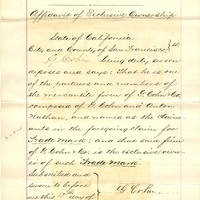 Affidavit of Exclusive Ownership.
State of California
City and County of San Francisco } ss.
G. Cohn being duly sworn
deposes and says: That he is one
of the partners and members of
the mercantile firm of G. Cohn & Co.
composed of G. Cohn and Anton
Nathan, and named as the claim-
ants in the foregoing claim for
Trade mark: and that said firm
of G. Cohn & Co. is the exclusive owner
of such Trade Mark.
Subscribed and
sworn to before
me this 15th day of
G. Cohn.